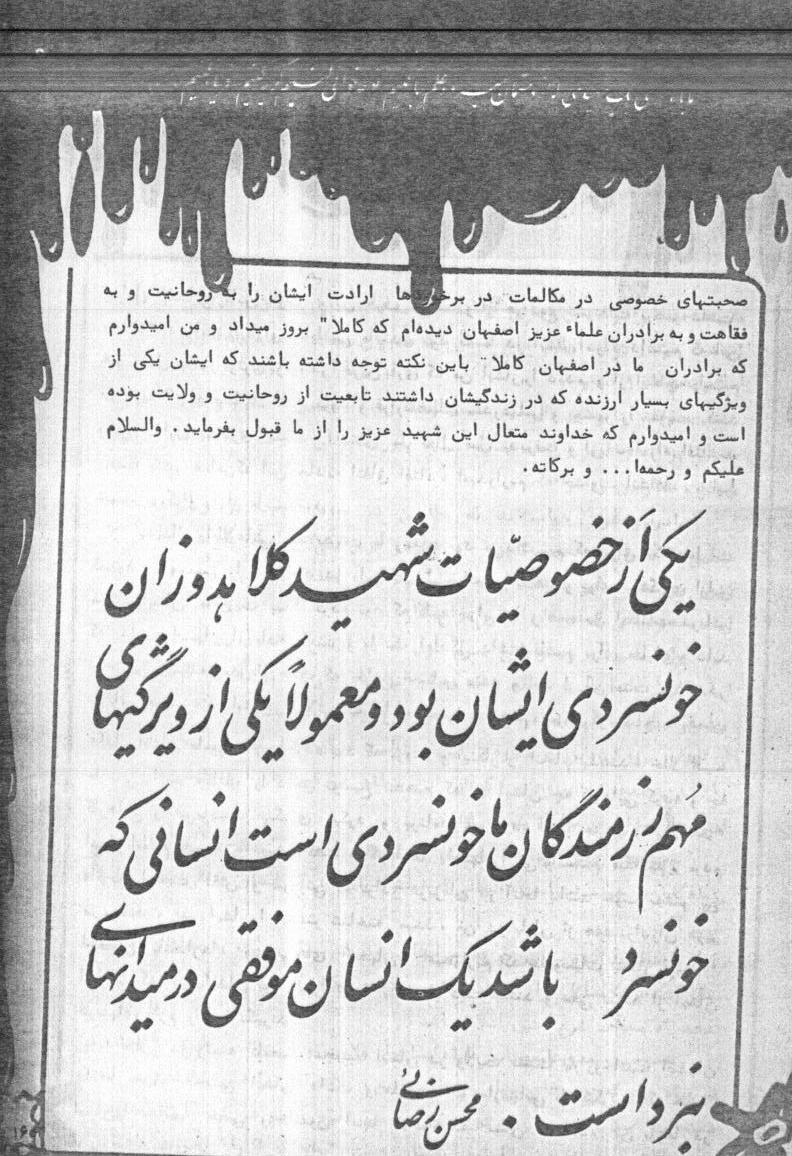 صحبتهای خصوصی در مکالمات در برخوردها ارادت ایشان را به روحانیت و به
فقاهت و به برادران علماء عزیز اصفهان دیده‌ام که کاملا" بروز میداد و من امیدوارم
که برادران ما در اصفهان کاملا" باین نکته توجه داشته باشند که ایشان یکی از
ویژگیهای بسیار ارزنده که در زندگیشان داشتند تابعیت از روحانیت و ولایت بوده
است و امیدوارم که خداوند متعال این شهید عزیز را از ما قبول بفرماید. والسلام
علیکم و رحمه‌ا... و برکاته.
یکی از خصوصیّات شهید کلاهدوزان
خونسردی ایشان بود و معمولاً یکی از ویژگیهای
مُهم رزمندگان ما خونسردی است انسانی که
خونسرد باشد یک انسان موفقی در میدانهای
نبرد است.
محسن رضائی
۱۶